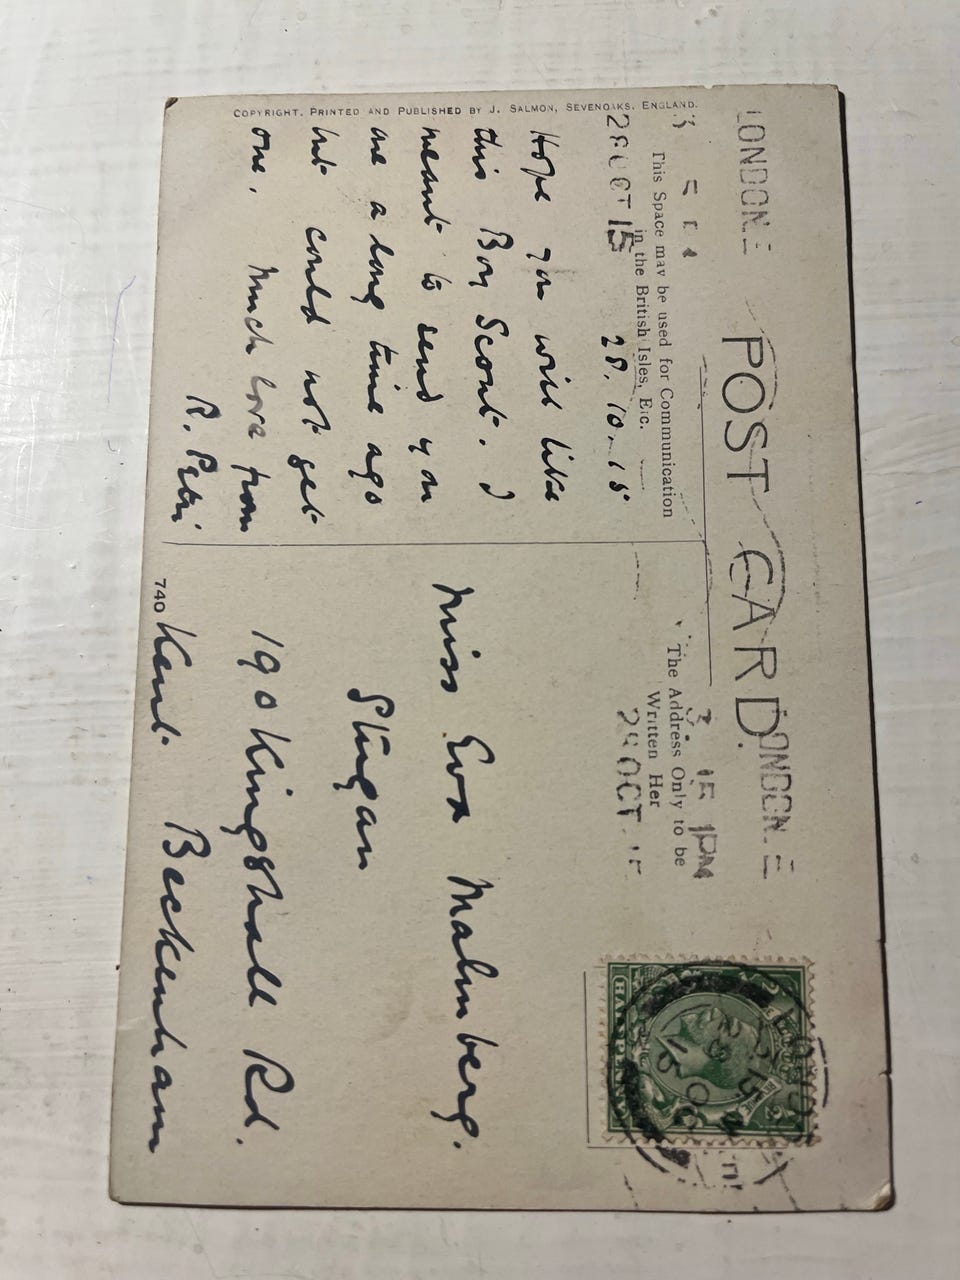 POST CARD.
This Space may be used for Communication
in the British Isles, Etc.
The Address Only to be
Written Her
LONDON. E
28 OCT 15
LONDON. E
1 PM
OCT
HALFPENNY
28. 10. 15
Hope you will like
this Boy Scout. I
meant to send you
one a long time ago
but could not get
one. Much love from
R. Petri
Miss Eva Malmberg.
Stugan
190 Kingshall Rd.
Kent Beckenham
740
COPYRIGHT. PRINTED AND PUBLISHED BY J. SALMON, SEVENOAKS, ENGLAND.